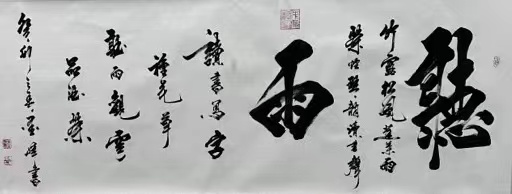 聽
竹露松風蕉葉雨
茶煙琴韻讀書聲
雨
讀書寫字
種花草
聽雨觀雲
品酒茶
癸卯之春書